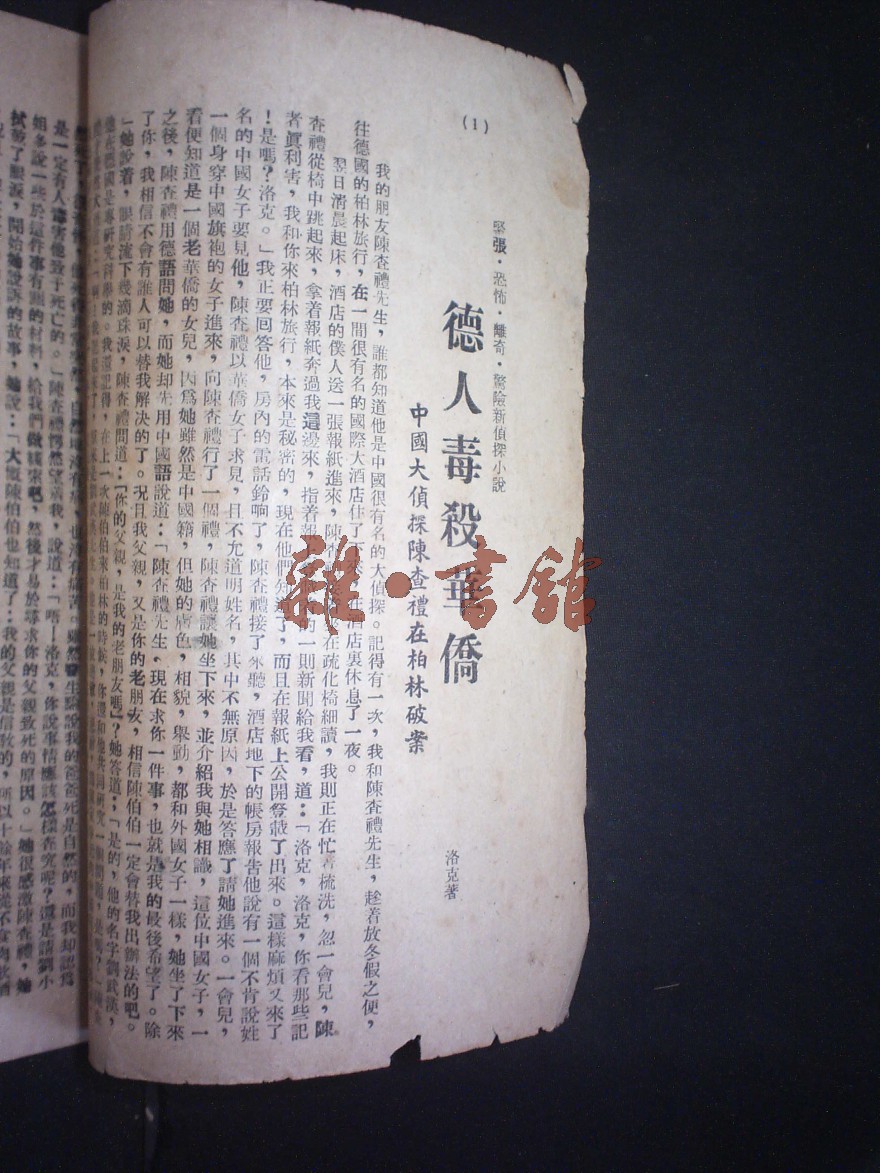 (1)
緊張·恐怖·離奇·驚險新偵探小說
德人毒殺華僑
中國大偵探陳查禮在柏林破案
洛克著
我的朋友陳查禮先生,誰都知道他是中國很有名的大偵探。記得有一次,我和陳查禮先生,趁着放冬假之便,
往德國的柏林旅行,在一間很有名的國際大酒店住了下來,在酒店裏休息了一夜。
翌日清晨起床,酒店的僕人送一張報紙進來,陳查禮在疏化椅細讀,我則正在忙着梳洗,忽一會兒,陳
查禮從椅中跳起來,拿着報紙奔過我這邊來,指着報的一則新聞給我看,道:「洛克,洛克,你看那些記
者眞利害,我和你來柏林旅行,本來是秘密的,現在他們知道了,而且在報紙上公開登載了出來。這樣麻煩又來了
!是嗎?洛克。」我正要回答他,房內的電話鈴响了,陳查禮接了來聽,酒店地下的帳房報告他說有一個不肯說姓
名的中國女子要見他,陳查禮以華僑女子求見,且不允道明姓名,其中不無原因,於是答應了請她進來。一會兒,
一個身穿中國旗袍的女子進來,向陳查禮行了一個禮,陳查禮讓她坐下來,並介紹我與她相識,這位中國女子,一
看便知道是一個老華僑的女兒,因爲她雖然是中國籍,但她的膚色,相貌,舉動,都和外國女子一樣,她坐了下來
之後,陳查禮用德語問她,而她却先用中國語說道:「陳查禮先生、現在求你一件事,也就是我的最後希望了。除
了你,我相信不會有誰人可以替我解決的了。况且我父親,又是你的老朋友,相信陳伯伯一定會替我出辦法的吧。
」她說着,眼睛流下幾滴珠淚,陳查禮問道:「你的父親,是我的老朋友嗎」?她答道:「是的,他的名字劉武漢,
他在德國是專研究科學的。我還記得,在上一次陳伯伯來柏林的時候,你還和他共同研究一個問題
自然的,也沒有痛苦。雖然醫生驗說我的爸爸死是自然的,而我却認爲
是一定有人毒害他致于死亡的。」陳查禮愕然望着我,說道:「唔—洛克,你說事情應該怎樣查究呢?還是請劉小
姐多說一些於這件事有關的材料,給我們做綫索吧,然後才易於尋求你的父親致死的原因。」她很感激陳查禮,她
拭乾了眼淚,開始她說訴的故事,她說:「大概陳伯伯也知道了:我的父親是信敎的,所以十餘年來從不